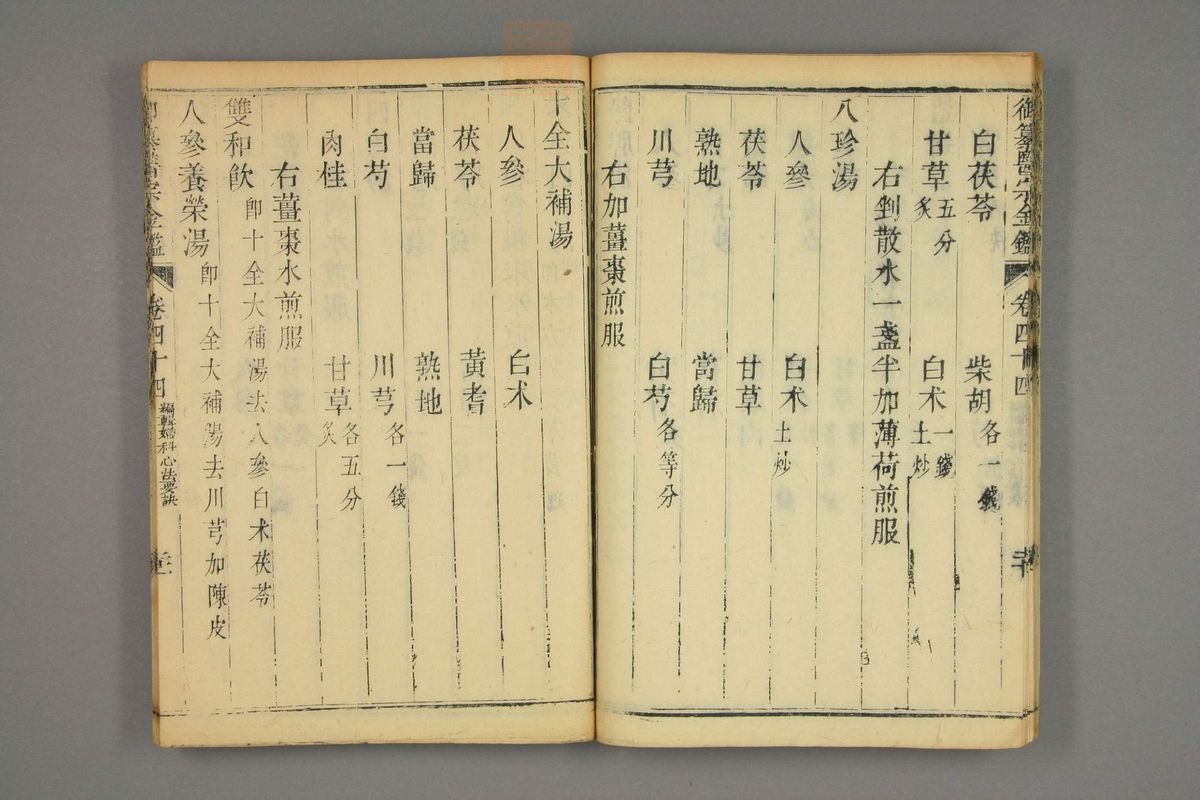 御纂醫宗金鑑 卷四十四
白茯苓 柴胡各一錢
甘草五分炙 白朮一錢土炒
右剉散水一盞半加薄荷煎服
八珍湯
人參 白朮土炒
茯苓 甘草
熟地 當歸
川芎 白芍各等分
右加薑棗煎服
十全大補湯
人參 白朮
茯苓 黃耆
當歸 熟地
白芍 川芎各一錢
肉桂 甘草各五分炙
右薑棗水煎服
雙和飲即十全大補湯去人參白朮茯苓
人參養榮湯即十全大補湯去川芎加陳皮
御纂醫宗金鑑 卷四十四 編輯婦科心法要訣